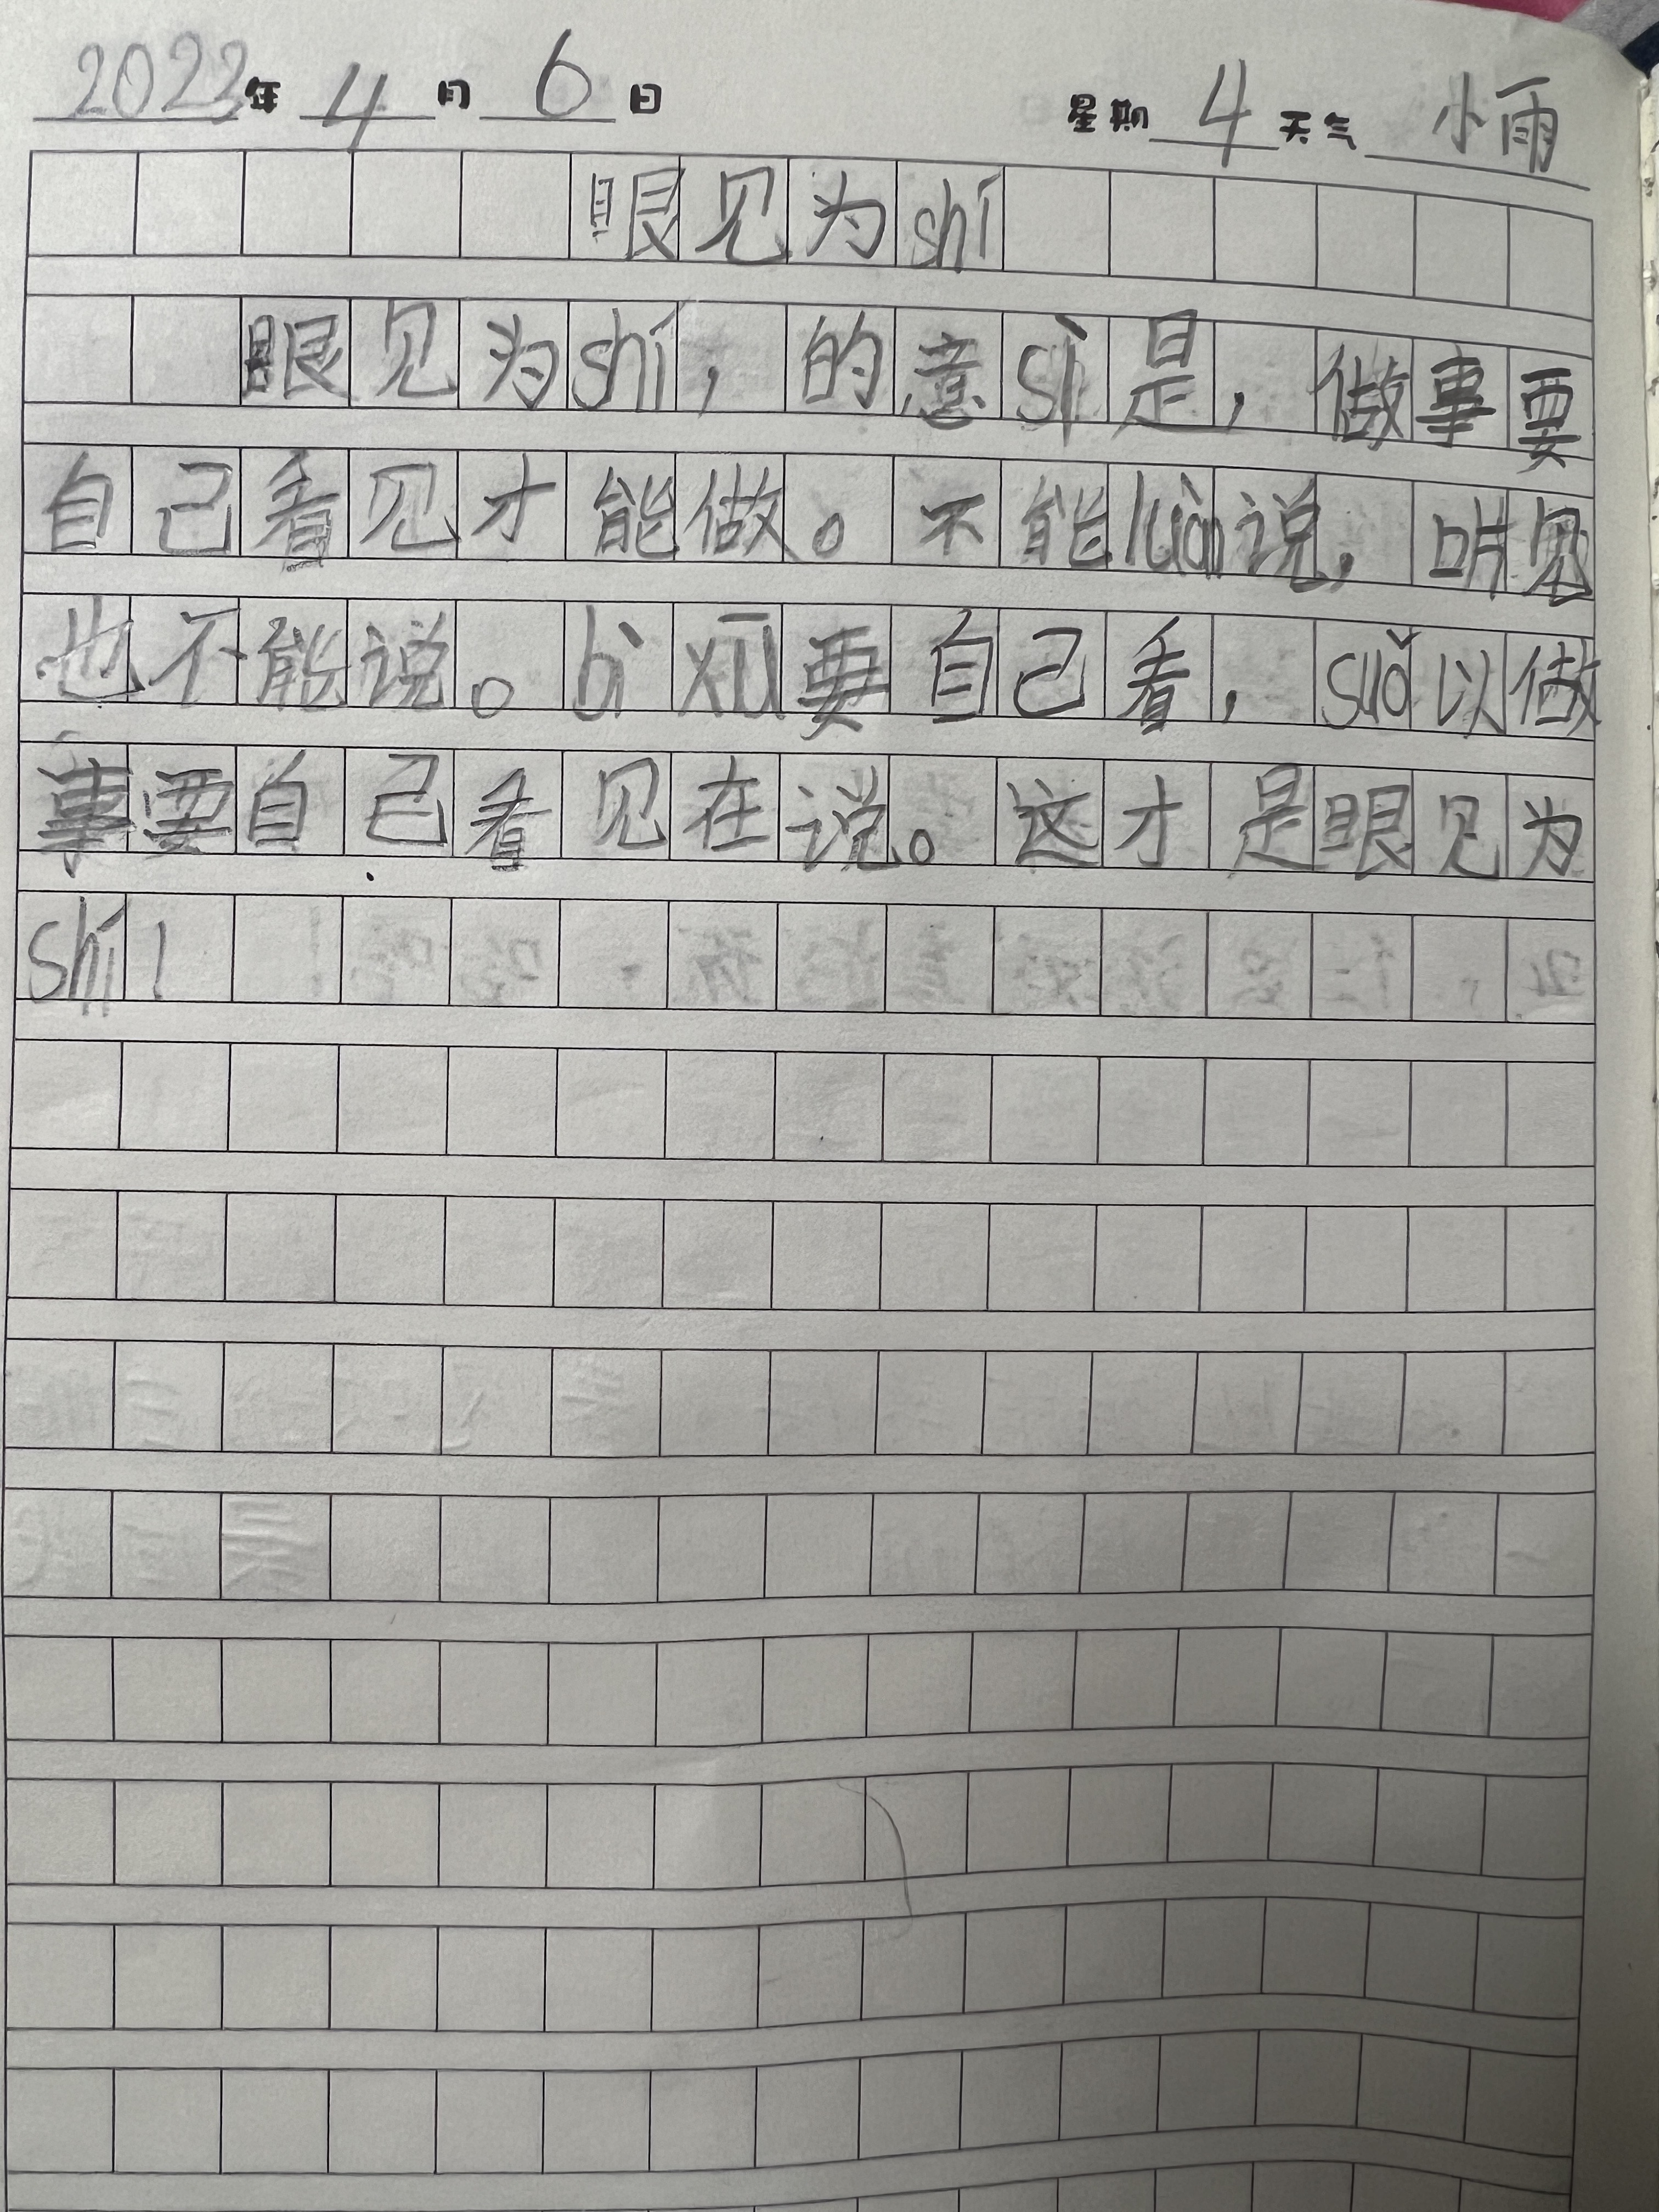 2023年 4月 6日 星期 4 天气 小雨
眼见为shí
眼见为shí，的意sì是，做事要
自己看见才能做。不能luàn说，听见
也不能说。bì xū要自己看，suǒ以做
事要自己看见在说。这才是眼见为
shí！